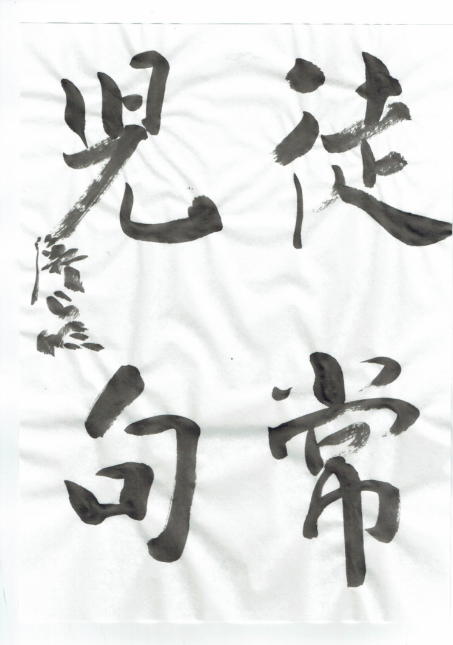 徒常
児句